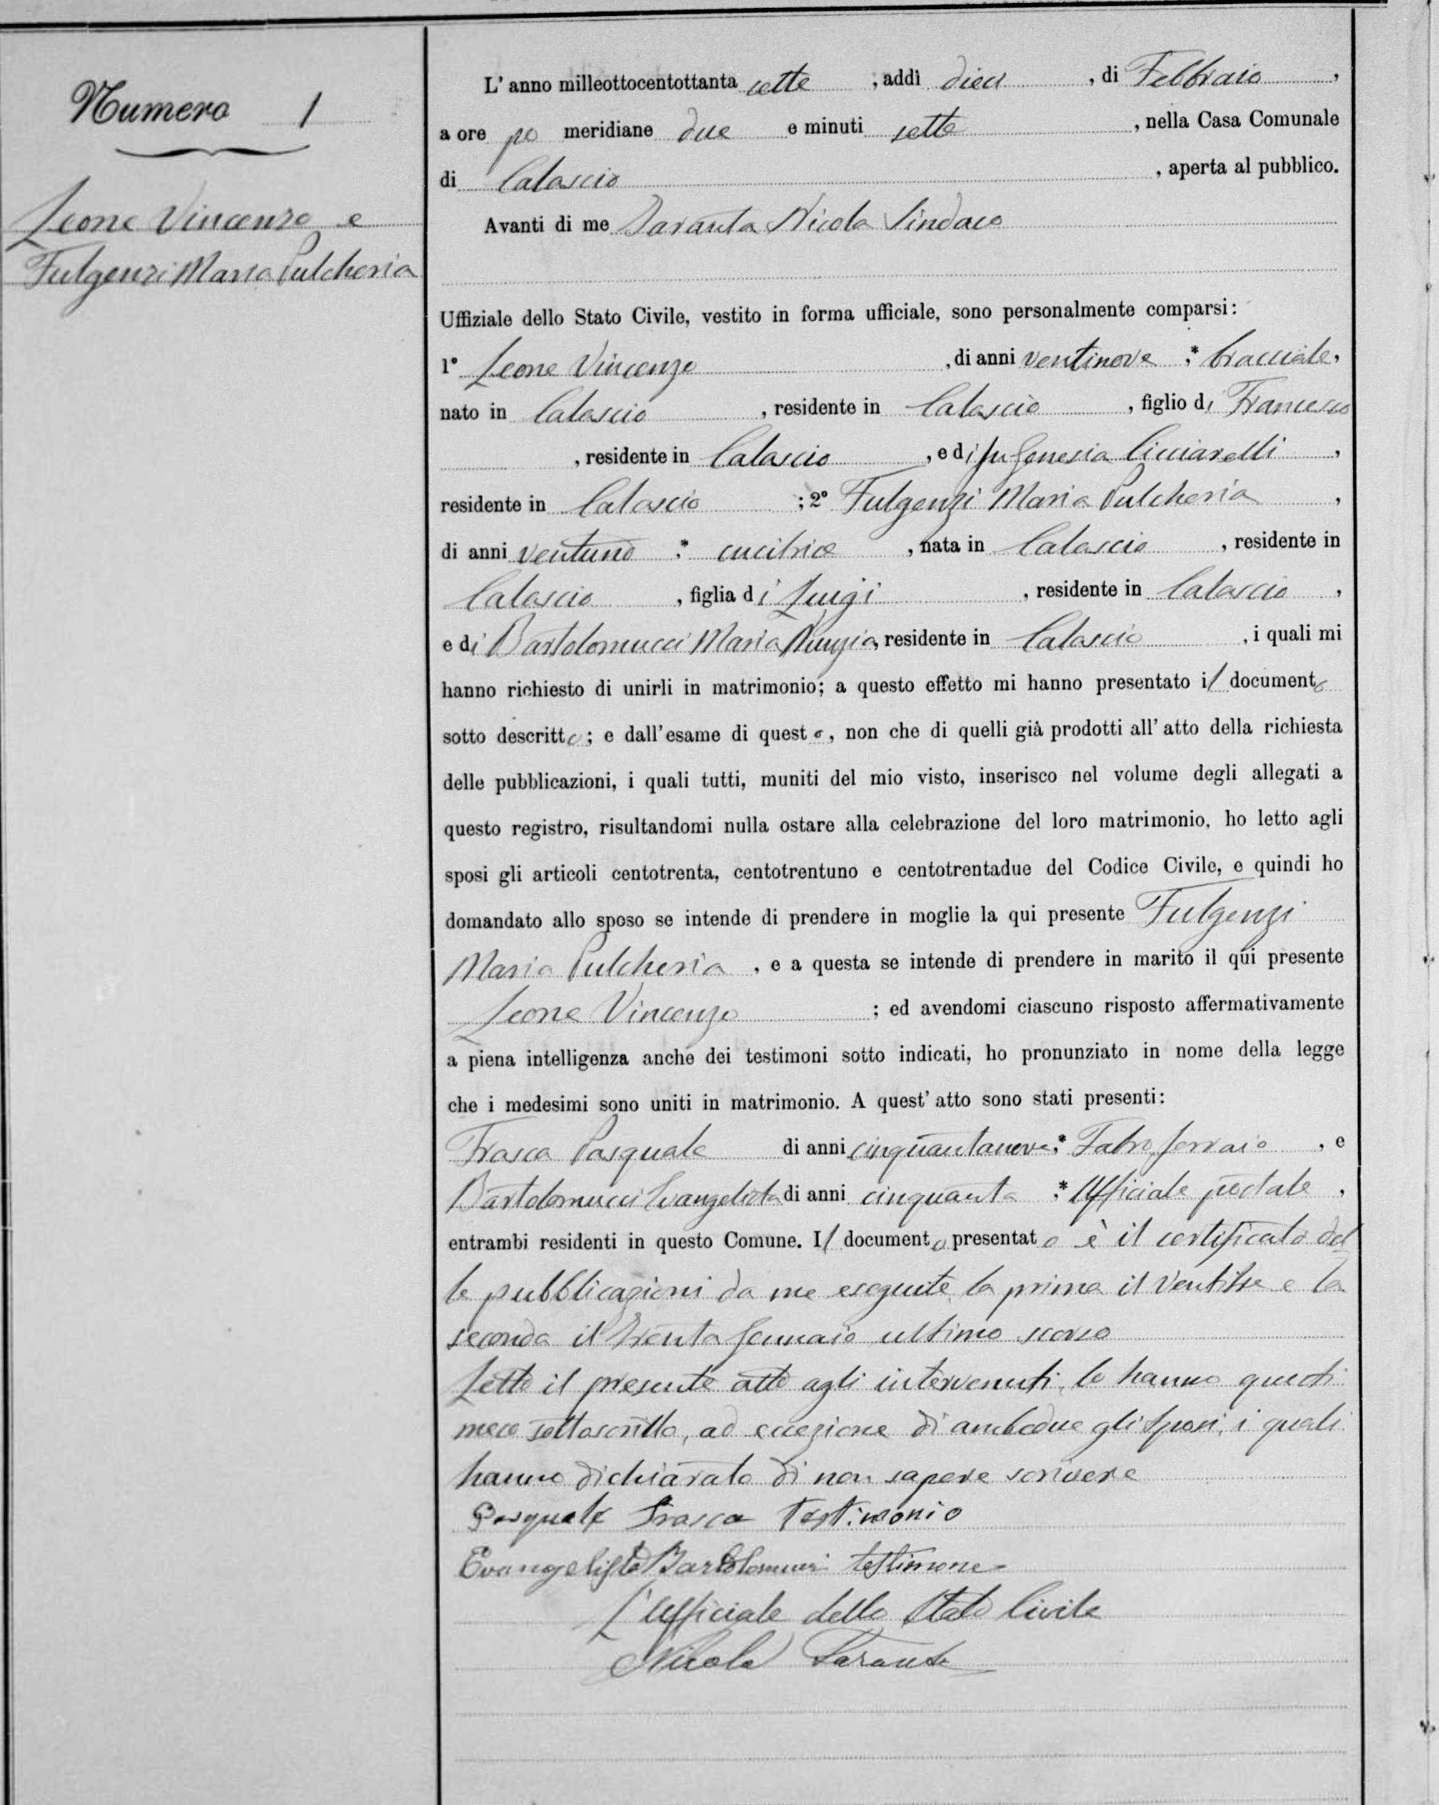 Numero 1
Leone Vincenzo e
Fulgenzi Maria Pulcheria
L'anno milleottocentottanta sette, addì dieci, di Febbraio,
a ore po meridiane due e minuti sette, nella Casa Comunale
di Calascio, aperta al pubblico.
Avanti di me Taranta Nicola Sindaco
Uffiziale dello Stato Civile, vestito in forma ufficiale, sono personalmente comparsi:
1° Leone Vincenzo, di anni ventinove,* bracciale,
nato in Calascio, residente in Calascio, figlio di Francesco
, residente in Calascio, e di fu Genesia Cicciarelli,
residente in Calascio; 2° Fulgenzi Maria Pulcheria,
di anni ventuno,* cucitrice, nata in Calascio, residente in
Calascio, figlia di Luigi, residente in Calascio,
e di Bartolomucci Maria Nunzia, residente in Calascio, i quali mi
hanno richiesto di unirli in matrimonio; a questo effetto mi hanno presentato il documento
sotto descritto; e dall'esame di questo, non che di quelli già prodotti all'atto della richiesta
delle pubblicazioni, i quali tutti, muniti del mio visto, inserisco nel volume degli allegati a
questo registro, risultandomi nulla ostare alla celebrazione del loro matrimonio, ho letto agli
sposi gli articoli centotrenta, centotrentuno e centotrentadue del Codice Civile, e quindi ho
domandato allo sposo se intende di prendere in moglie la qui presente Fulgenzi
Maria Pulcheria, e a questa se intende di prendere in marito il qui presente
Leone Vincenzo; ed avendomi ciascuno risposto affermativamente
a piena intelligenza anche dei testimoni sotto indicati, ho pronunziato in nome della legge
che i medesimi sono uniti in matrimonio. A quest'atto sono stati presenti:
Frasca Pasquale di anni cinquantanove,* Fabro ferraio, e
Bartolomucci Evangelista di anni cinquanta,* Ufficiale postale,
entrambi residenti in questo Comune. Il documento presentato è il certificato del
le pubblicazioni da me eseguite, la prima il ventitre e la
seconda il trenta Gennaio ultimo scorso
Letto il presente atto agli intervenuti, lo hanno questi
meco sottoscritto, ad eccezione di ambedue gli sposi, i quali
hanno dichiarato di non sapere scrivere
Pasquale Frasca testimonio
Evangelista Bartolomucci testimone
L'Ufficiale dello Stato Civile
Nicola Taranta